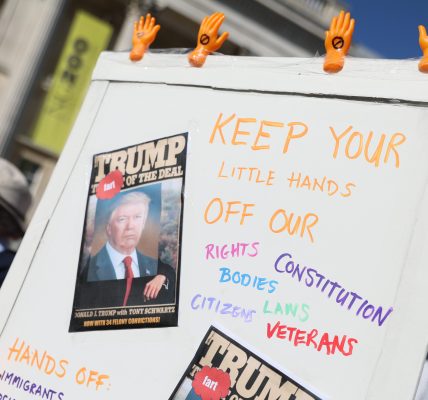 200
KEEP YOUR
LITTLE HANDS
OFF OUR
RIGHTS
BODIES
CONSTITUTION
CITIZENS
LAWS
VETERANS
TRUMP
fart
OF THE DEAL
DONALD J. TRUMP with TONY SCHWARTZ
NOW WITH 34 FELONY CONVICTIONS!
HANDS OFF:
IMMIGRANTS
TRUMP
fart